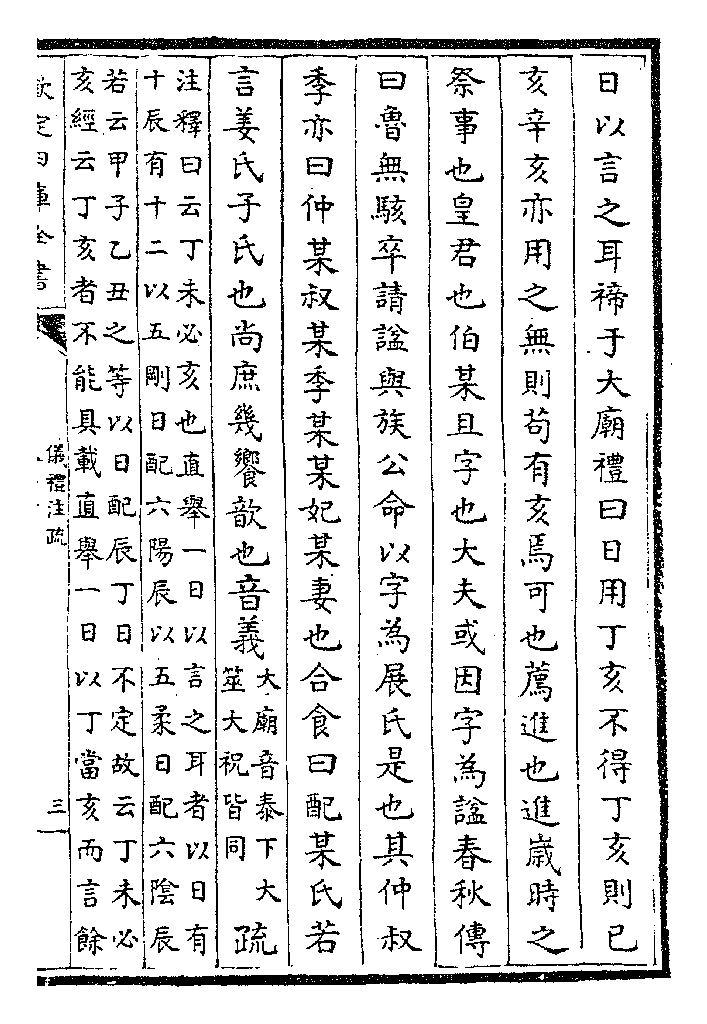 日以言之耳禘于大廟禮曰日用丁亥不得丁亥則已
亥辛亥亦用之無則苟有亥焉可也薦進也進歲時之
祭事也皇君也伯某且字也大夫或因字為諡春秋傳
曰魯無駭卒請諡與族公命以字為展氏是也其仲叔
季亦曰仲某叔某季某某妃某妻也合食曰配某氏若
言姜氏子氏也尚庶幾饗歆也音義
大廟音泰下大
筮大祝皆同
疏
注釋曰云丁未必亥也直舉一日以言之耳者以日有
十辰有十二以五剛日配六陽辰以五柔日配六陰辰
若云甲子乙丑之等以日配辰丁日不定故云丁未必
亥經云丁亥者不能具載直舉一日以丁當亥而言餘
欽定四庫全書
儀禮注疏
三